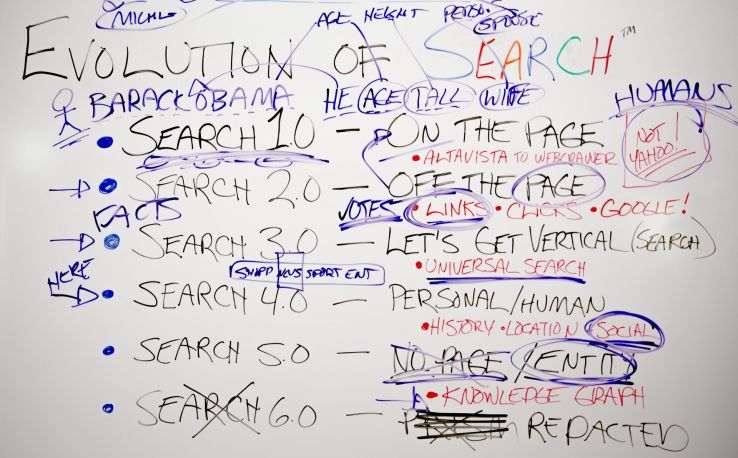 AGE HEIGHT PERSON SPOUSE
EVOLUTION OF SEARCH™
BARACK OBAMA HE AGE TALL WIFE HUMANS
• SEARCH 1.0 — ON THE PAGE
• ALTAVISTA TO WEBCRAWLER
NOT YAHOO!!
• SEARCH 2.0 — OFF THE PAGE
VOTES • LINKS • CLICKS • GOOGLE!
FACTS
• SEARCH 3.0 — LET'S GET VERTICAL (SEARCH)
• UNIVERSAL SEARCH
NEWS SPORT ENT
HERE
• SEARCH 4.0 — PERSONAL/HUMAN
• HISTORY • LOCATION • SOCIAL
• SEARCH 5.0 — NO PAGE/ENTITY
• KNOWLEDGE GRAPH
• SEARCH 6.0 — REDACTED